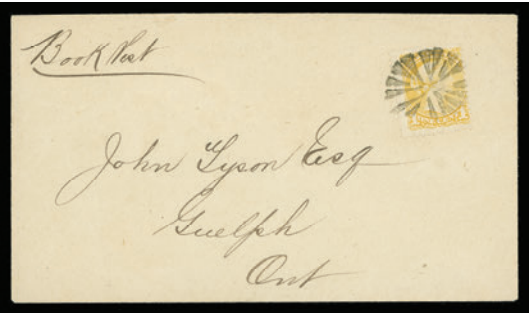 Book Post
John Tyson Esq
Guelph
Ont